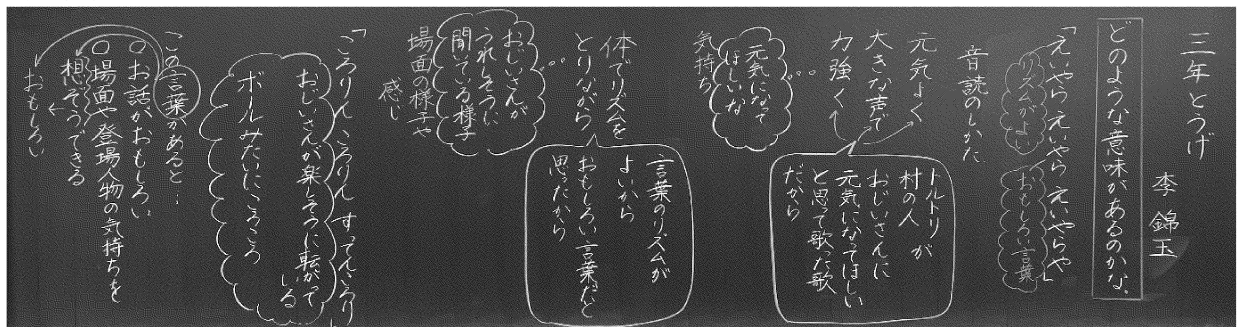 三年とうげ
李錦玉
どのような意味があるのかな。
「えいやら えいやら えいやらや」
リズムがよい
おもしろい言葉
音読のしかた
元気よく
大きな声で
力強く
トルトリが
村の人
おじいさんに
元気になってほしい
と思って歌った歌
だから
元気になって
ほしいな
気持ち
体でリズムを
とりながら
言葉のリズムが
よいから
おもしろい言葉だと
思ったから
おじいさんが
うれしそうに
聞いている様子
場面の様子や
感じ
「ころりん ころりん すってんころり
おじいさんが楽しそうに転がって
いる
ボールみたいにころころ
この言葉があると…
○お話がおもしろい
○場面や登場人物の気持ちを
想ぞうできる
おもしろい